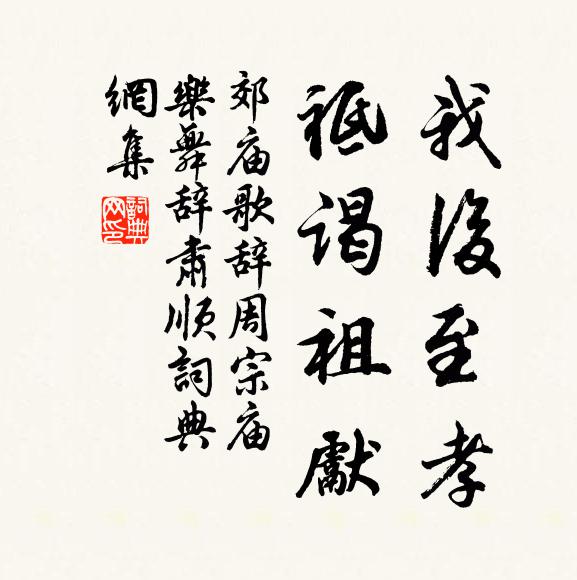 我後至孝
祗謁祖獻
郊庙歌辞周宗庙
樂舞辞肅順詞典
網集
詞典
网印